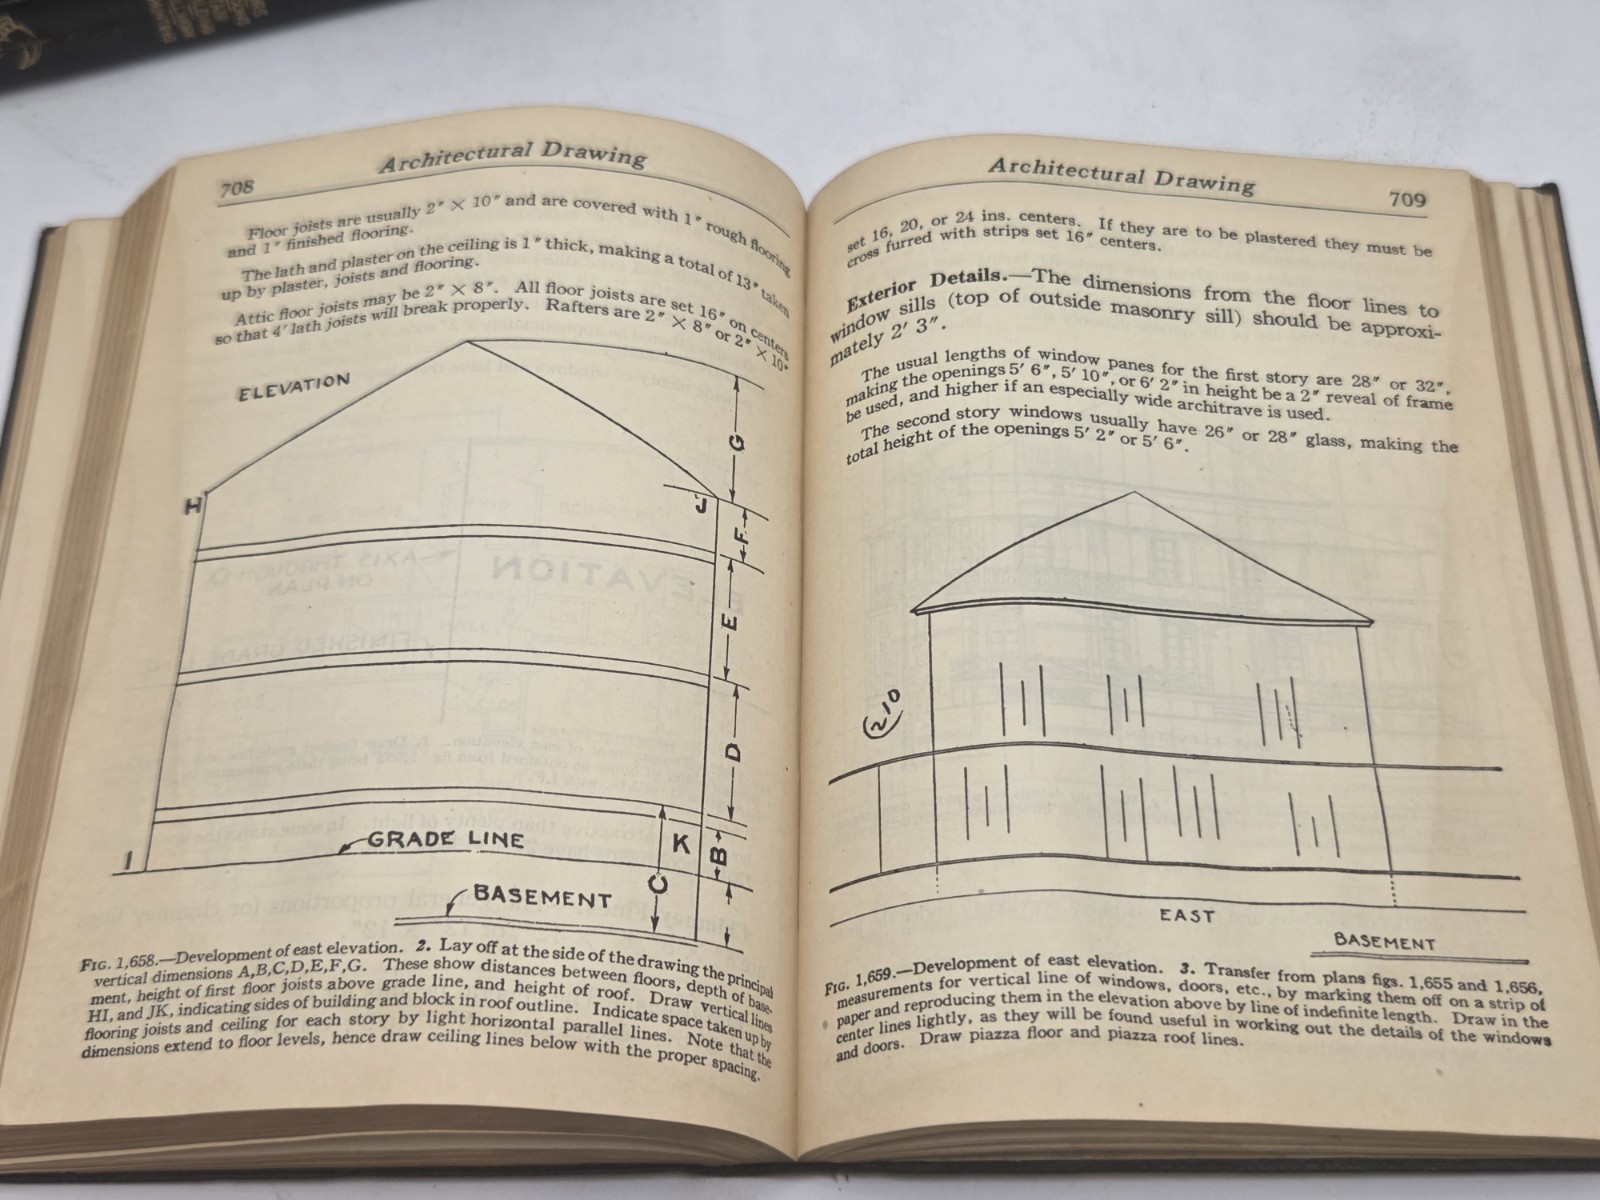 708
Architectural Drawing
Floor joists are usually 2″ × 10″ and are covered with 1″ rough flooring
and 1″ finished flooring.
The lath and plaster on the ceiling is 1″ thick, making a total of 13″ taken
up by plaster, joists and flooring.
Attic floor joists may be 2″ × 8″. All floor joists are set 16″ on centers
so that 4′ lath joists will break properly. Rafters are 2″ × 8″ or 2″ × 10″
ELEVATION
G
H
J
F
E
D
GRADE LINE
K
B
I
C
BASEMENT
FIG. 1,658.—Development of east elevation. 2. Lay off at the side of the drawing the principal
vertical dimensions A,B,C,D,E,F,G. These show distances between floors, depth of base-
ment, height of first floor joists above grade line, and height of roof. Draw vertical lines
HI, and JK, indicating sides of building and block in roof outline. Indicate space taken up by
flooring joists and ceiling for each story by light horizontal parallel lines. Note that the
dimensions extend to floor levels, hence draw ceiling lines below with the proper spacing.
Architectural Drawing
709
set 16, 20, or 24 ins. centers. If they are to be plastered they must be
cross furred with strips set 16″ centers.
Exterior Details.—The dimensions from the floor lines to
window sills (top of outside masonry sill) should be approxi-
mately 2′ 3″.
The usual lengths of window panes for the first story are 28″ or 32″,
making the openings 5′ 6″, 5′ 10″, or 6′ 2″ in height be a 2″ reveal of frame
be used, and higher if an especially wide architrave is used.
The second story windows usually have 26″ or 28″ glass, making the
total height of the openings 5′ 2″ or 5′ 6″.
210
EAST
BASEMENT
FIG. 1,659.—Development of east elevation. 3. Transfer from plans figs. 1,655 and 1,656,
measurements for vertical line of windows, doors, etc., by marking them off on a strip of
paper and reproducing them in the elevation above by line of indefinite length. Draw in the
center lines lightly, as they will be found useful in working out the details of the windows
and doors. Draw piazza floor and piazza roof lines.